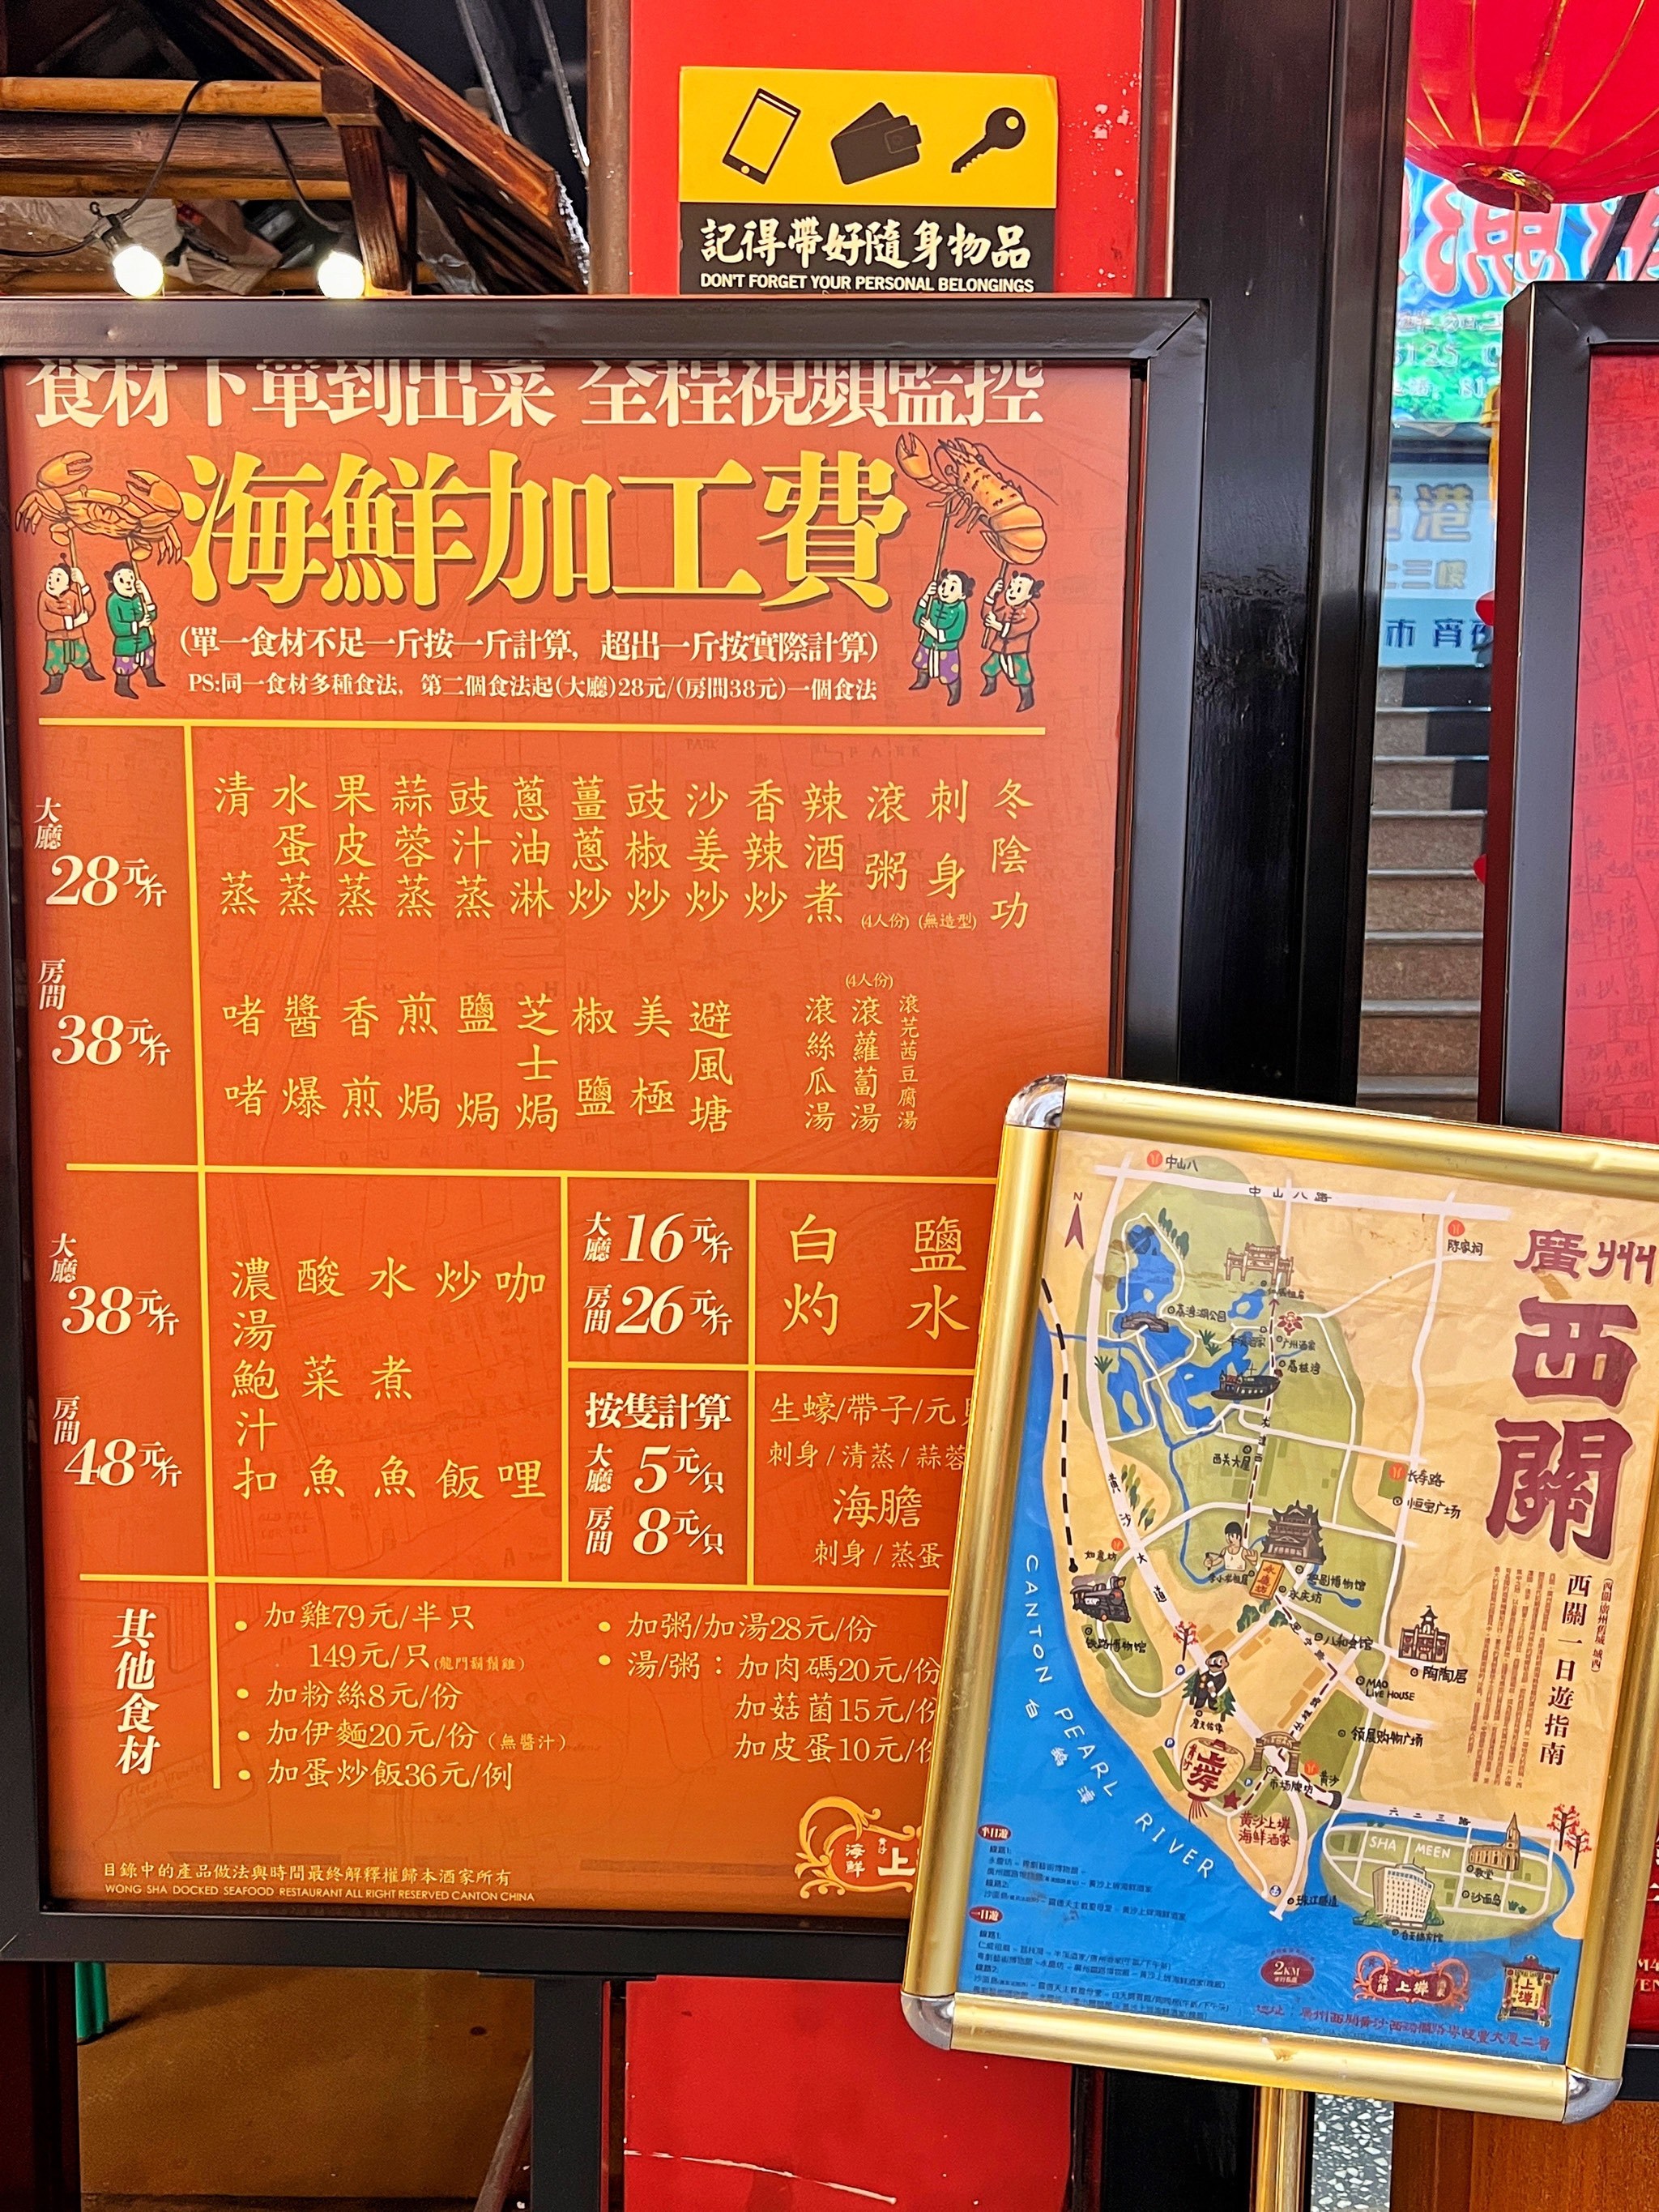 記得帶好隨身物品
DON'T FORGET YOUR PERSONAL BELONGINGS
食材下單到出菜 全程視頻監控
海鮮加工費
(單一食材不足一斤按一斤計算, 超出一斤按實際計算)
PS:同一食材多種食法, 第二個食法起(大廳)28元/(房間38元)一個食法
大廳
28元/斤
房間
38元/斤
清蒸
水蛋蒸
果皮蒸
蒜蓉蒸
豉汁蒸
蔥油淋
薑蔥炒
豉椒炒
沙姜炒
香辣炒
辣酒煮
滾粥
(4人份)
刺身
(無造型)
冬陰功
啫啫
醬爆
香煎
煎焗
鹽焗
芝士焗
椒鹽
美極
避風塘
(4人份)
滾絲瓜湯
滾蘿蔔湯
滾芫茜豆腐湯
大廳
38元/斤
房間
48元/斤
濃湯鮑汁扣
酸菜魚
水煮魚
炒飯
咖哩
大廳 16元/斤
房間 26元/斤
白灼
鹽水
按隻計算
大廳 5元/只
房間 8元/只
生蠔/帶子/元
刺身/清蒸/蒜蓉
海膽
刺身/蒸蛋
其他食材
• 加雞79元/半只
149元/只(龍門鬍鬚雞)
• 加粉絲8元/份
• 加伊麵20元/份(無醬汁)
• 加蛋炒飯36元/例
• 加粥/加湯28元/份
• 湯/粥：加肉碼20元/份
加菇菌15元/份
加皮蛋10元/份
目錄中的產品做法與時間最終解釋權歸本酒家所有
WONG SHA DOCKED SEAFOOD RESTAURANT ALL RIGHT RESERVED CANTON CHINA
海鮮
上
廣州
西關
西關一日遊指南
(西關:廣州舊城城西)
N
中山八
中山八路
陈家祠
荔湾湖公园
广州酒家
荔枝湾
西关大屋
长寿路
恒宝广场
黄沙大道
如意坊
粤剧博物馆
永庆坊
八和会馆
铁路博物馆
陶陶居
MAO LIVE HOUSE
领展购物广场
詹天佑像
上岸
市场牌坊
黄沙
黃沙上岸
海鮮酒家
六二三路
SHA MEEN
教堂
沙面岛
白天鹅宾馆
珠江隧道
CANTON PEARL RIVER
白鵝潭
半日遊
線路1:
線路2:
一日遊
線路1:
線路2:
2KM
海鮮 上岸 酒家
上岸
港
市 宵夜